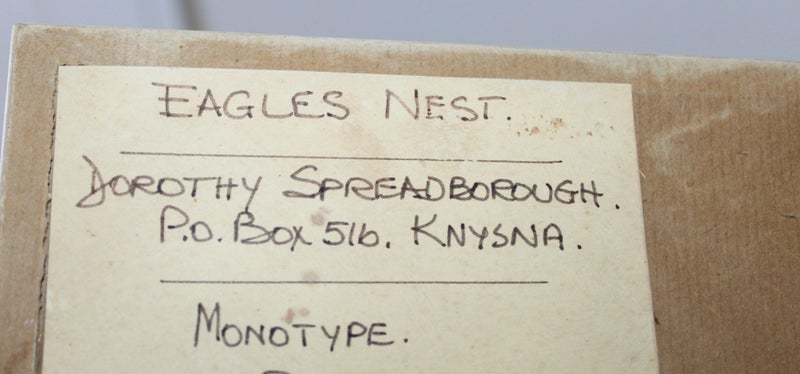 EAGLES NEST.
DOROTHY SPREADBOROUGH.
P.O. BOX 516. KNYSNA.
MONOTYPE.